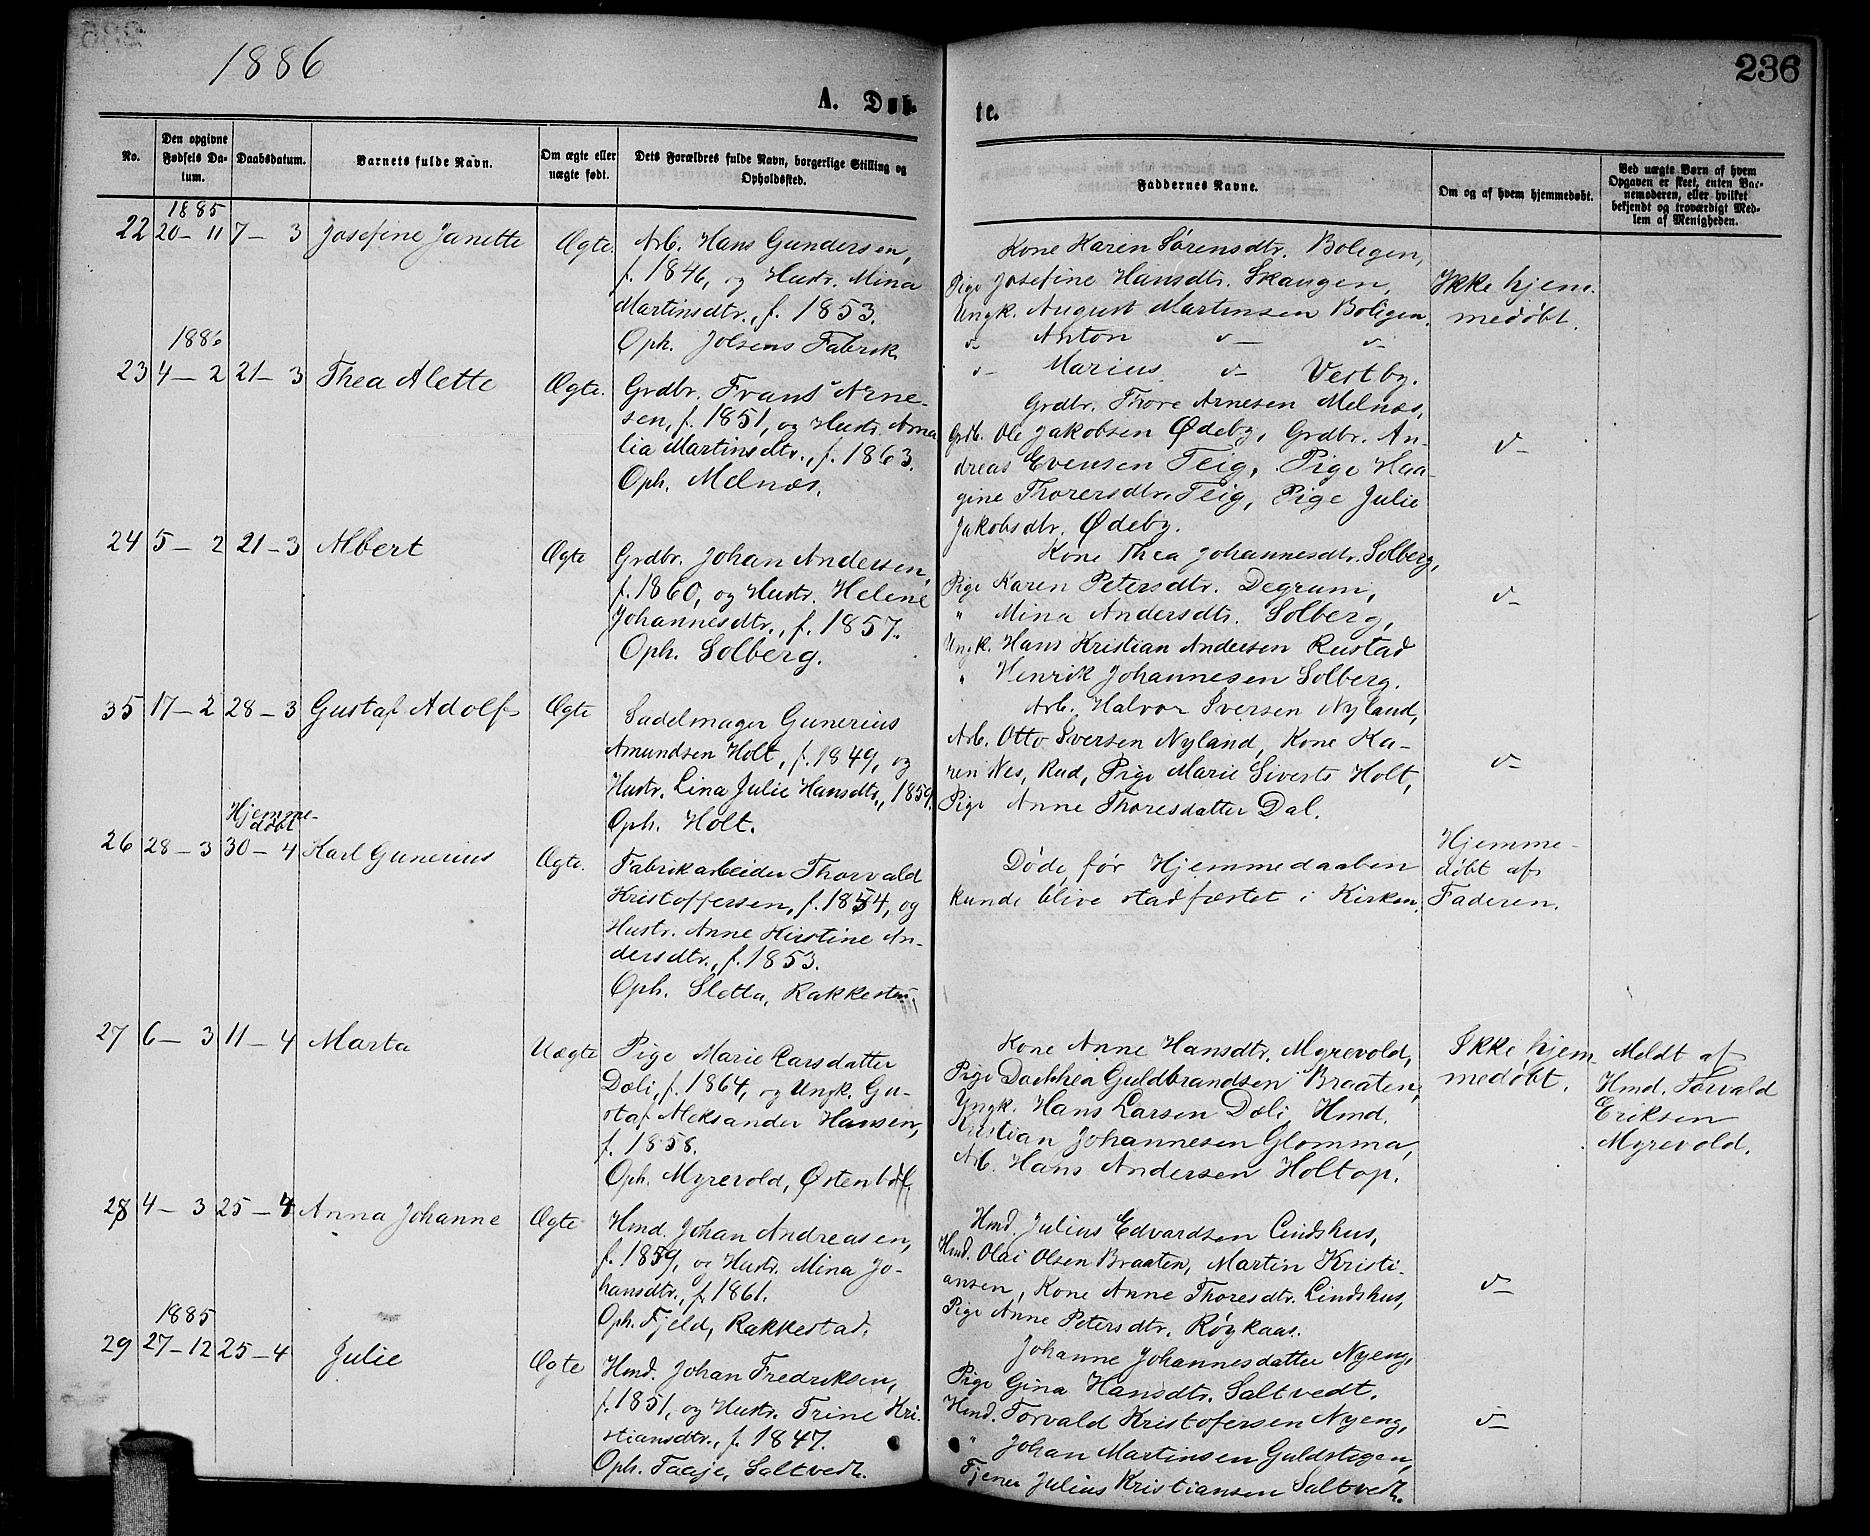 1886
236
A. Døb-
te.
No.
Den opgivne Fødsels Da-
tum.
Daabsdatum.
Barnets fulde Navn.
Om ægte eller
uægte født.
Dets Forældres fulde Navn, borgerlige Stilling og
Opholdssted.
Faddernes Navne.
Om og af hvem hjemmedøbt.
Ved uægte Børn af hvem
Opgaven er skeet, enten Bar-
nemoderen, eller hvilket
bekjendt og troværdigt Med-
lem af Menigheden.
1885
22 20-11 7-3 Josefine Janette Ægte.
Arb. Hans Gundersen,
f. 1846, og Hustr. Mina
Martinsdtr., f. 1853.
Oph. Jolsens Fabrik
Kone Karen Sørensdtr. Boligen,
Pige Josefine Hansdtr. Skaugen,
Ungk. August Martinsen Boligen.
" Anton " "
" Marius " Vestby.
Ikke hjem-
medøbt.
1886
23 4-2 21-3 Thea Alette Ægte.
Grdbr. Frans Arne-
sen, f. 1851, og Hustr. Ama
lia Martinsdtr., f. 1863.
Oph. Melnæs.
Grdbr. Thore Arnesen Melnæs,
Grdb. Ole Jakobsen Ødeby, Grdbr. An-
dreas Evensen Teig, Pige Haa-
gine Thorersdtr. Teig, Pige Julie
Jakobsdtr. Ødeby.
"
24 5-2 21-3 Albert Ægte
Grdbr. Johan Andersen,
f. 1860, og Hustr. Helene
Johannesdtr., f. 1857.
Oph. Solberg.
Kone Thea Johannesdtr. Solberg,
Pige Karen Petersdtr. Degrum,
" Mina Andersdtr. Solberg,
Ungk. Hans Kristian Andersen Rustad
" Henrik Johannesen Solberg.
"
35 17-2 28-3 Gustaf Adolf Ægte
Sadelmager Gunerius
Amundsen Holt, f. 1849, og
Hustr. Lina Julie Hansdtr., 1859.
Oph. Holt.
Arb. Halvor Iversen Nyland,
Arb. Otto Iversen Nyland, Kone Ka-
ren Nes, Rud, Pige Marie Siverts Holt,
Pige Anne Thoresdatter Dal.
"
Hjemme-
døbt
26 28-3 30-4 Karl Gunerius Ægte.
Fabrikarbeider Thorvald
Kristoffersen, f. 1854, og
Hustr. Anne Kirstine An-
dersdtr., f. 1853.
Oph. Sletta, Rakkestad.
Døde før Hjemmedaaben
kunde blive stadfæstet i Kirken.
Hjemme-
døbt af
Faderen.
27 6-3 11-4 Marta Uægte
Pige Marie Larsdatter
Dæli, f. 1864, og Ungk. Gu-
staf Aleksander Hansen,
f. 1858.
Oph. Myrevold, Østenbøl,
Kone Anne Hansdtr. Myrevold,
Pige Dorthea Guldbrandsen Braaten,
Yngk. Hans Larsen Dæli, Hmd.
Kristian Johannesen Glomma,
Arb. Hans Andersen Holtop.
Ikke hjem-
medøbt.
Meldt af
Hmd. Torvald
Eriksen
Myrevold.
28 4-3 25-4 Anna Johanne Ægte
Hmd. Johan Andreasen,
f. 1859, og Hustr. Mina Jo-
hansdtr., f. 1861.
Oph. Fjeld, Rakkestad.
Hmd. Julius Edvardsen Lindshus,
Hmd. Olai Olsen Braaten, Martin Kristi-
ansen, Kone Anne Thoresdtr. Lindshus,
Pige Anne Petersdtr. Røykaas.
"
1885
29 27-12 25-4 Julie Ægte
Hmd. Johan Fredriksen,
f. 1851, og Hustr. Trine Kri-
stiansdtr., f. 1847.
Oph. Taaje, Saltvedt.
Johanne Johannesdatter Nyeng,
Pige Gina Hansdtr. Saltvedt.
Hmd. Torvald Kristofersen Nyeng,
" Johan Martinsen Guldstegen,
Tjener Julius Kristiansen Saltvedt.
"